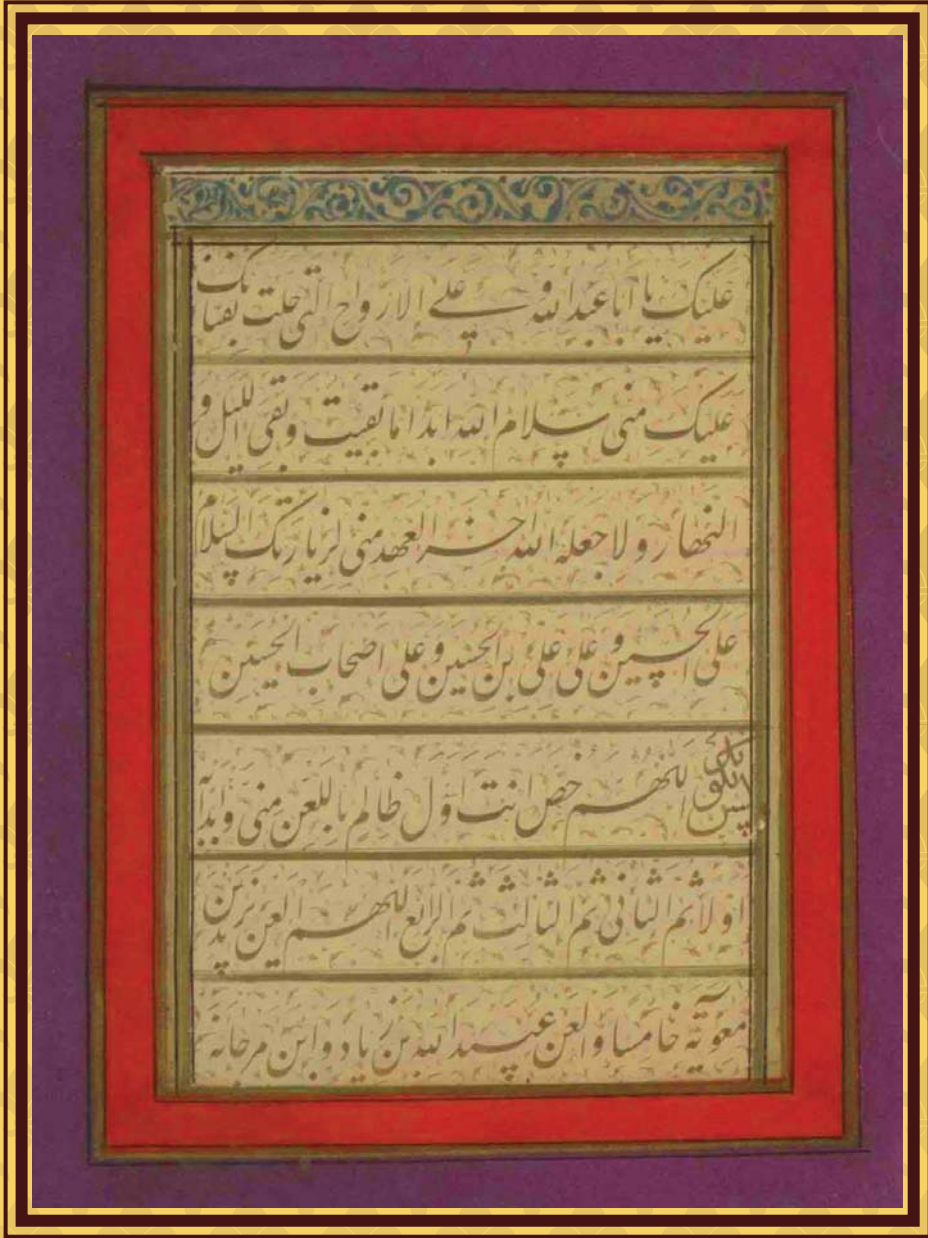 علیک یا ابا عبدالله و علی الارواح التی حلت بفنائک
علیک منی سلام الله ابدا ما بقیت و بقی اللیل و
النهار و لا جعله الله اخر العهد منی لزیارتک السلام
علی الحسین و علی علی بن الحسین و علی اصحاب الحسین
اللهم خص انت اول ظالم باللعن منی و ابدا
اولا ثم الثانی ثم الثالث ثم الرابع اللهم العن یزید بن
معویة خامسا و العن عبید الله بن زیاد و ابن مرجانه